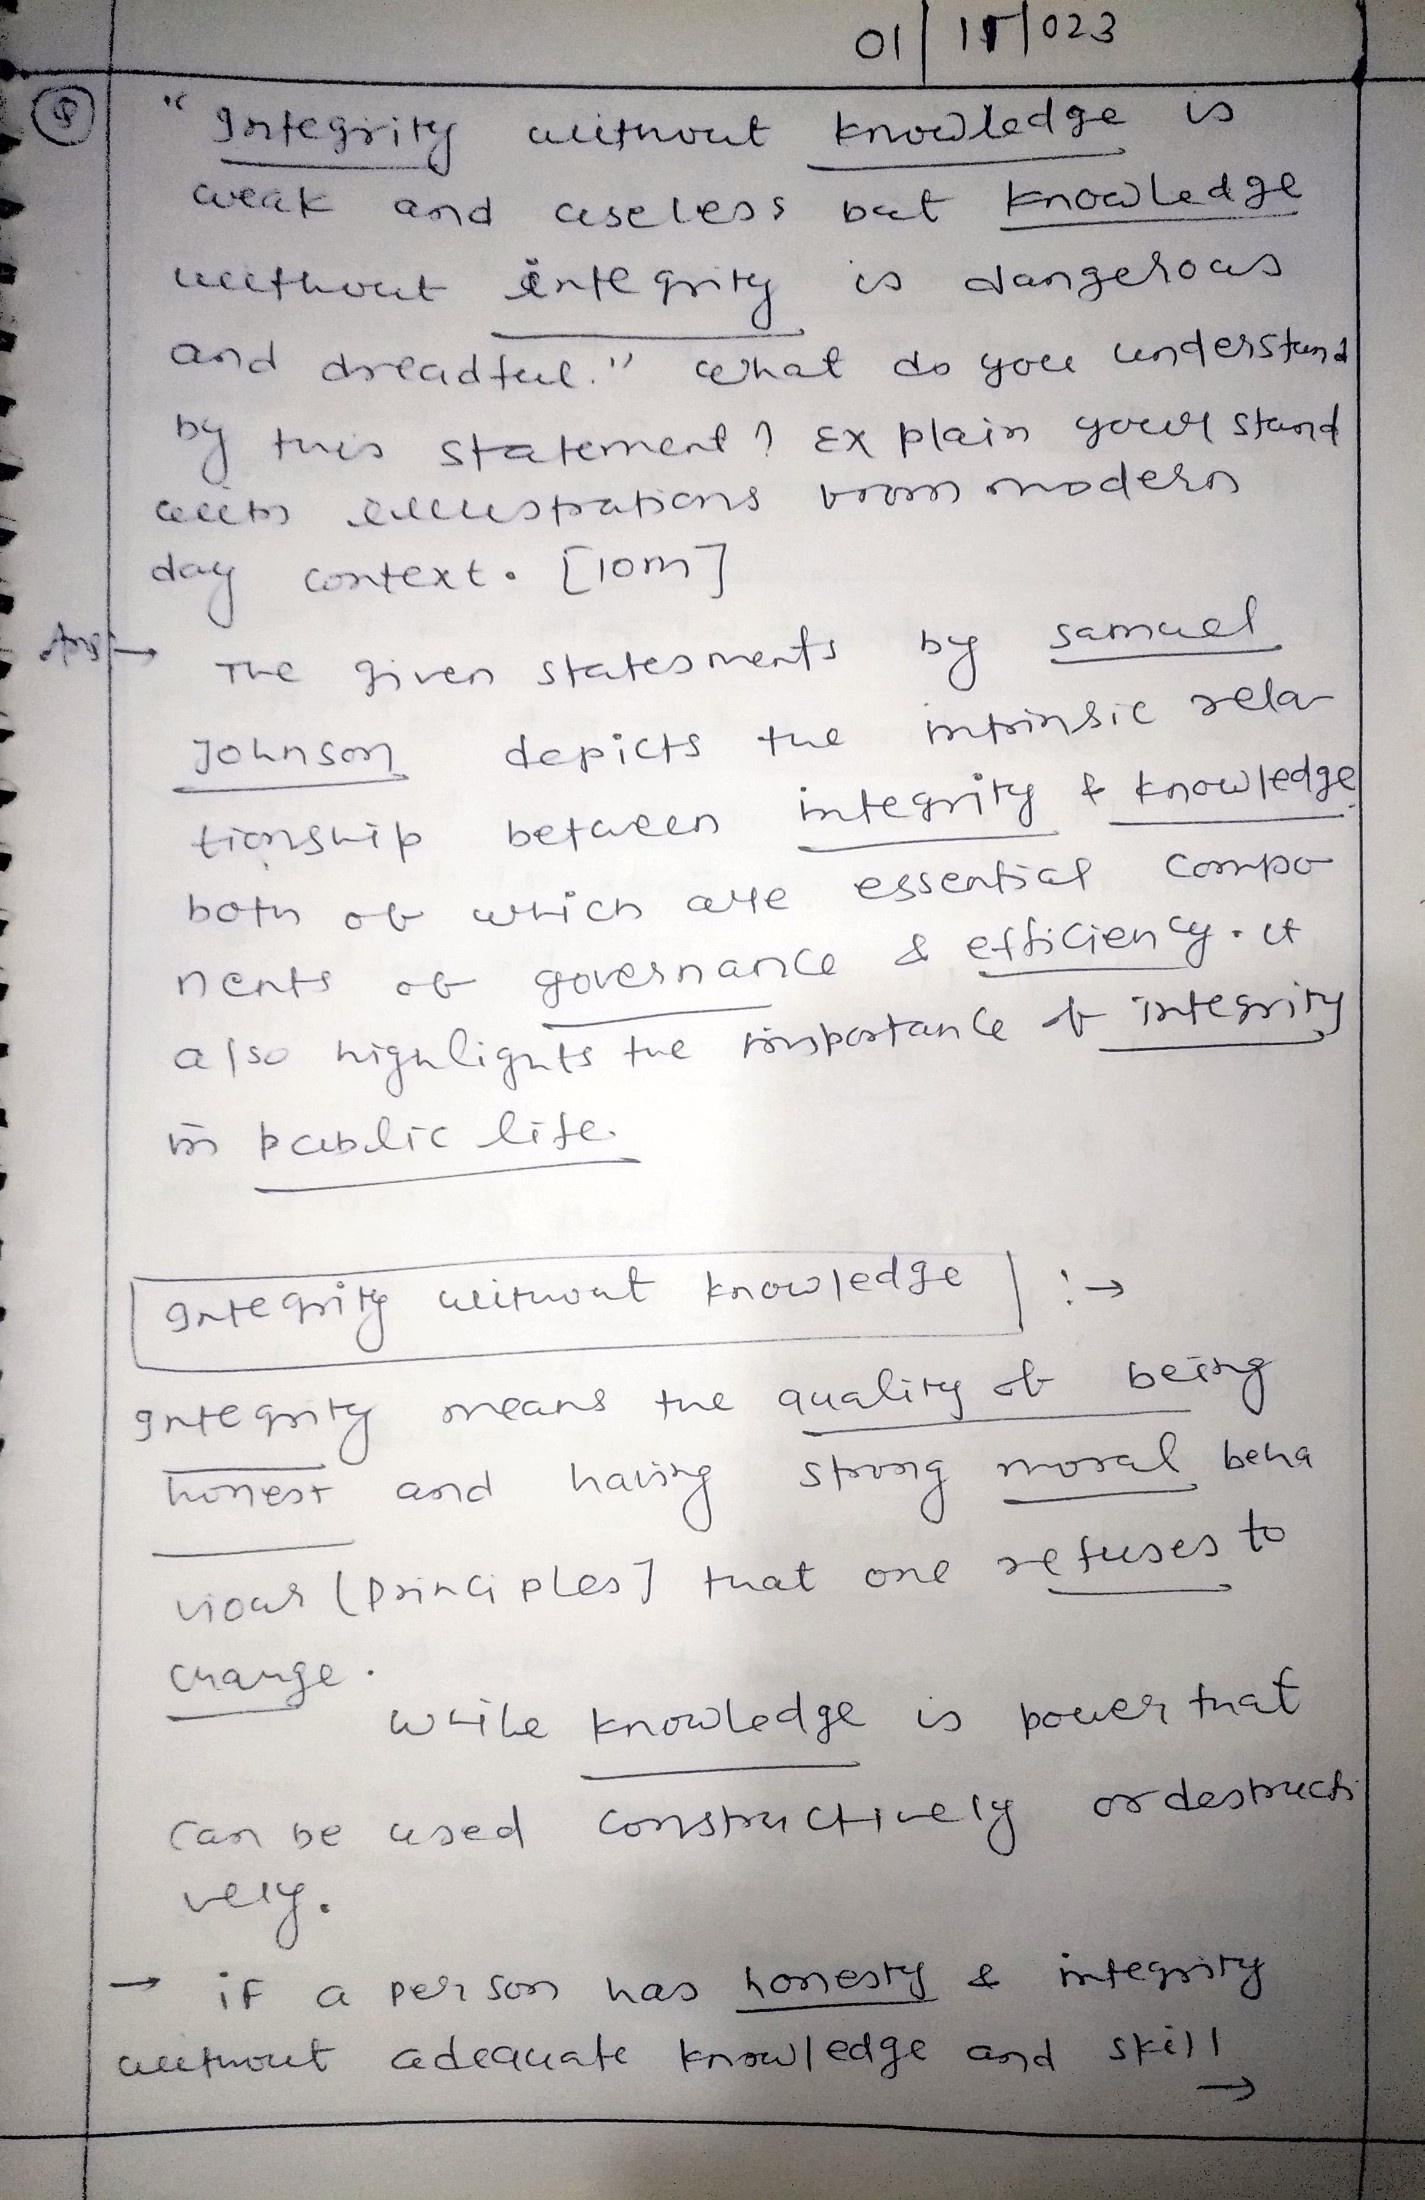 01/11/023
Q
"Integrity without knowledge is
weak and useless but knowledge
without integrity is dangerous
and dreadful." What do you understand
by this statement? Explain your stand
with illustrations from modern
day context. [10m]
Ans→ The given statesments by samuel
Johnson depicts the intrinsic rela
tionship between integrity & knowledge
both of which are essential compo
nents of governance & efficiency. it
also highlights the importance of integrity
in public life.
Integrity without knowledge :→
Integrity means the quality of being
honest and having strong moral beha
viour (principles] that one refuses to
change.
while knowledge is power that
can be used constructively or destructi
vely.
→ if a person has honesty & integrity
without adequate knowledge and skill
→